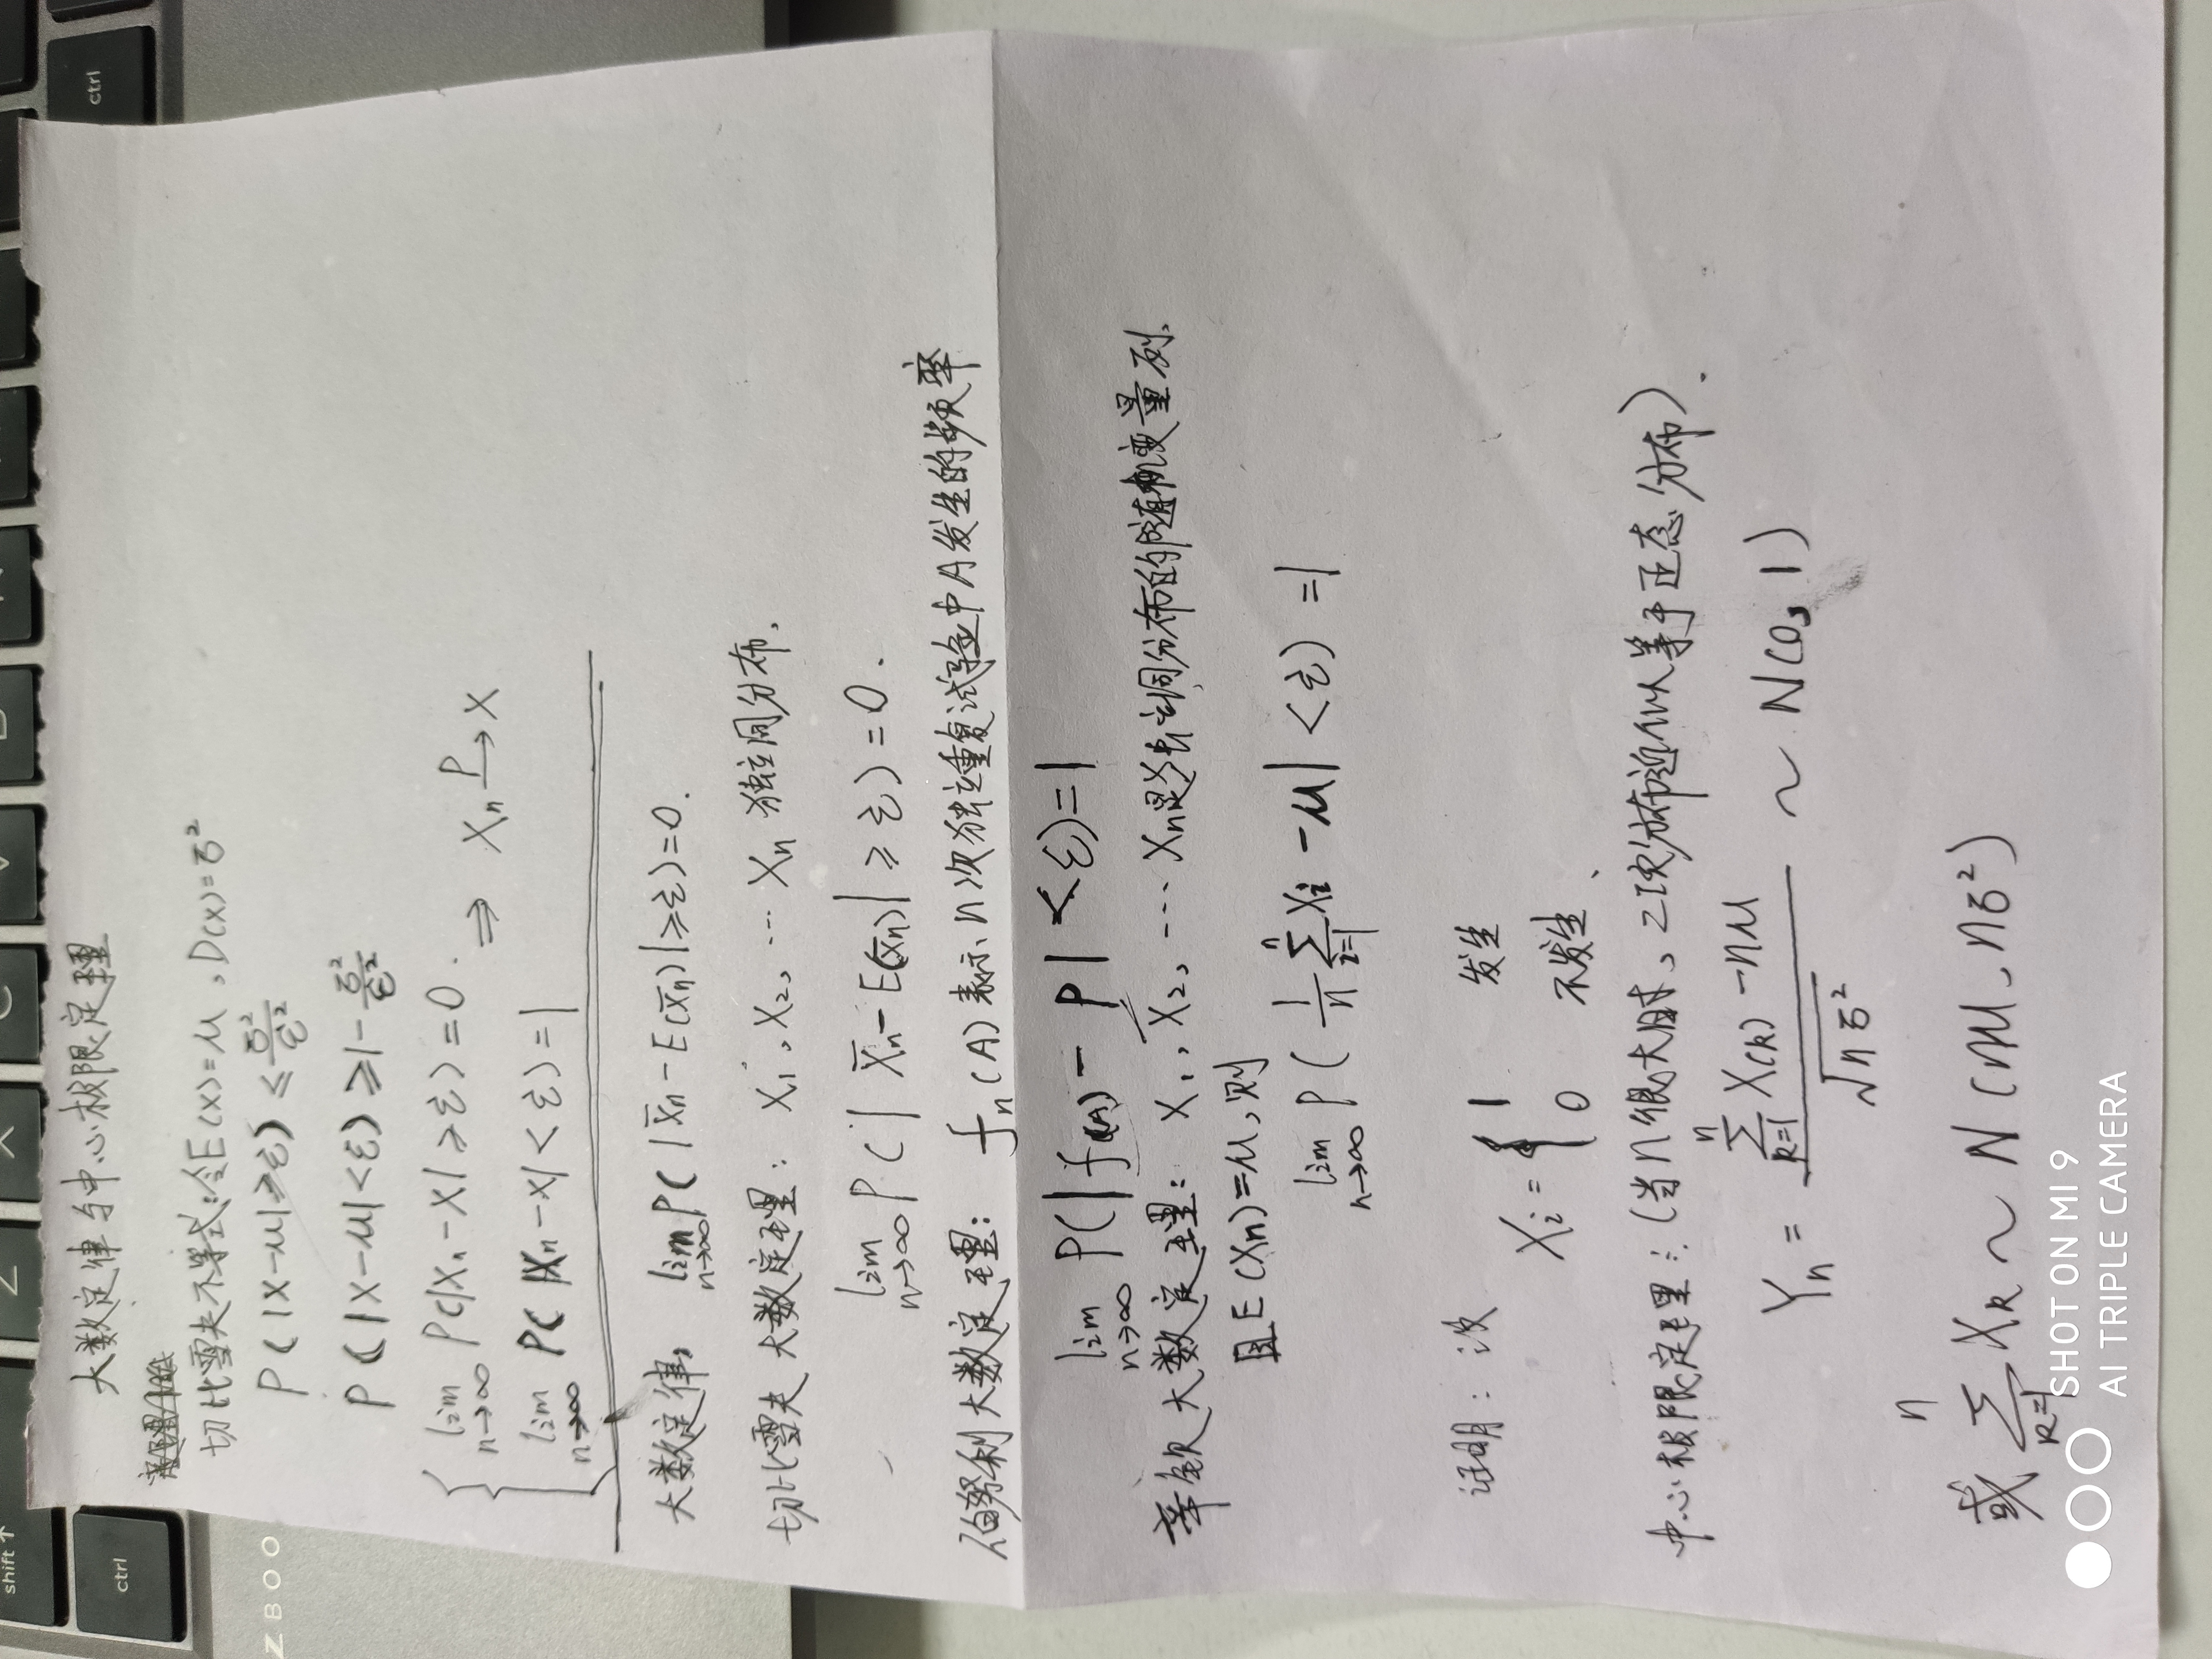 大数定律与中心极限定理
切比雪夫不等式:令E(x)=μ,D(x)=σ²
P(|X-μ|≥ε) ≤ σ²/ε²
P(|X-μ|<ε) ≥ 1-σ²/ε²
lim n→∞ P(|Xn-X|≥ε)=0.
⇒ Xn P→ X
lim n→∞ P(|Xn-X|<ε)=1
大数定律, lim n→∞ P(|X̄n-E(X̄n)|≥ε)=0.
切比雪夫大数定理: X1,X2,… Xn 独立同分布.
lim n→∞ P(|X̄n-E(X̄n)|≥ε)=0.
伯努利大数定理: fn(A)表示n次独立重复试验中A发生的频率
lim n→∞ P(|f(A)-P|<ε)=1
辛钦大数定理: X1,X2,… Xn是独立同分布的随机变量列.
且E(Xn)=μ,则
lim n→∞ P(1/n Σ i=1 n Xi-μ|<ε)=1
证明:设
Xi = { 1 发生
0 不发生.
中心极限定理:(当n很大时,二项分布近似等于正态分布).
Yn = (Σ k=1 n X(k)-nμ)/√nσ² ~ N(0,1)
或 Σ k=1 n Xk ~ N(nμ,nσ²)
ctrl
shift
Z
X
C
V
ctrl
ZBOO
SHOT ON MI 9
AI TRIPLE CAMERA